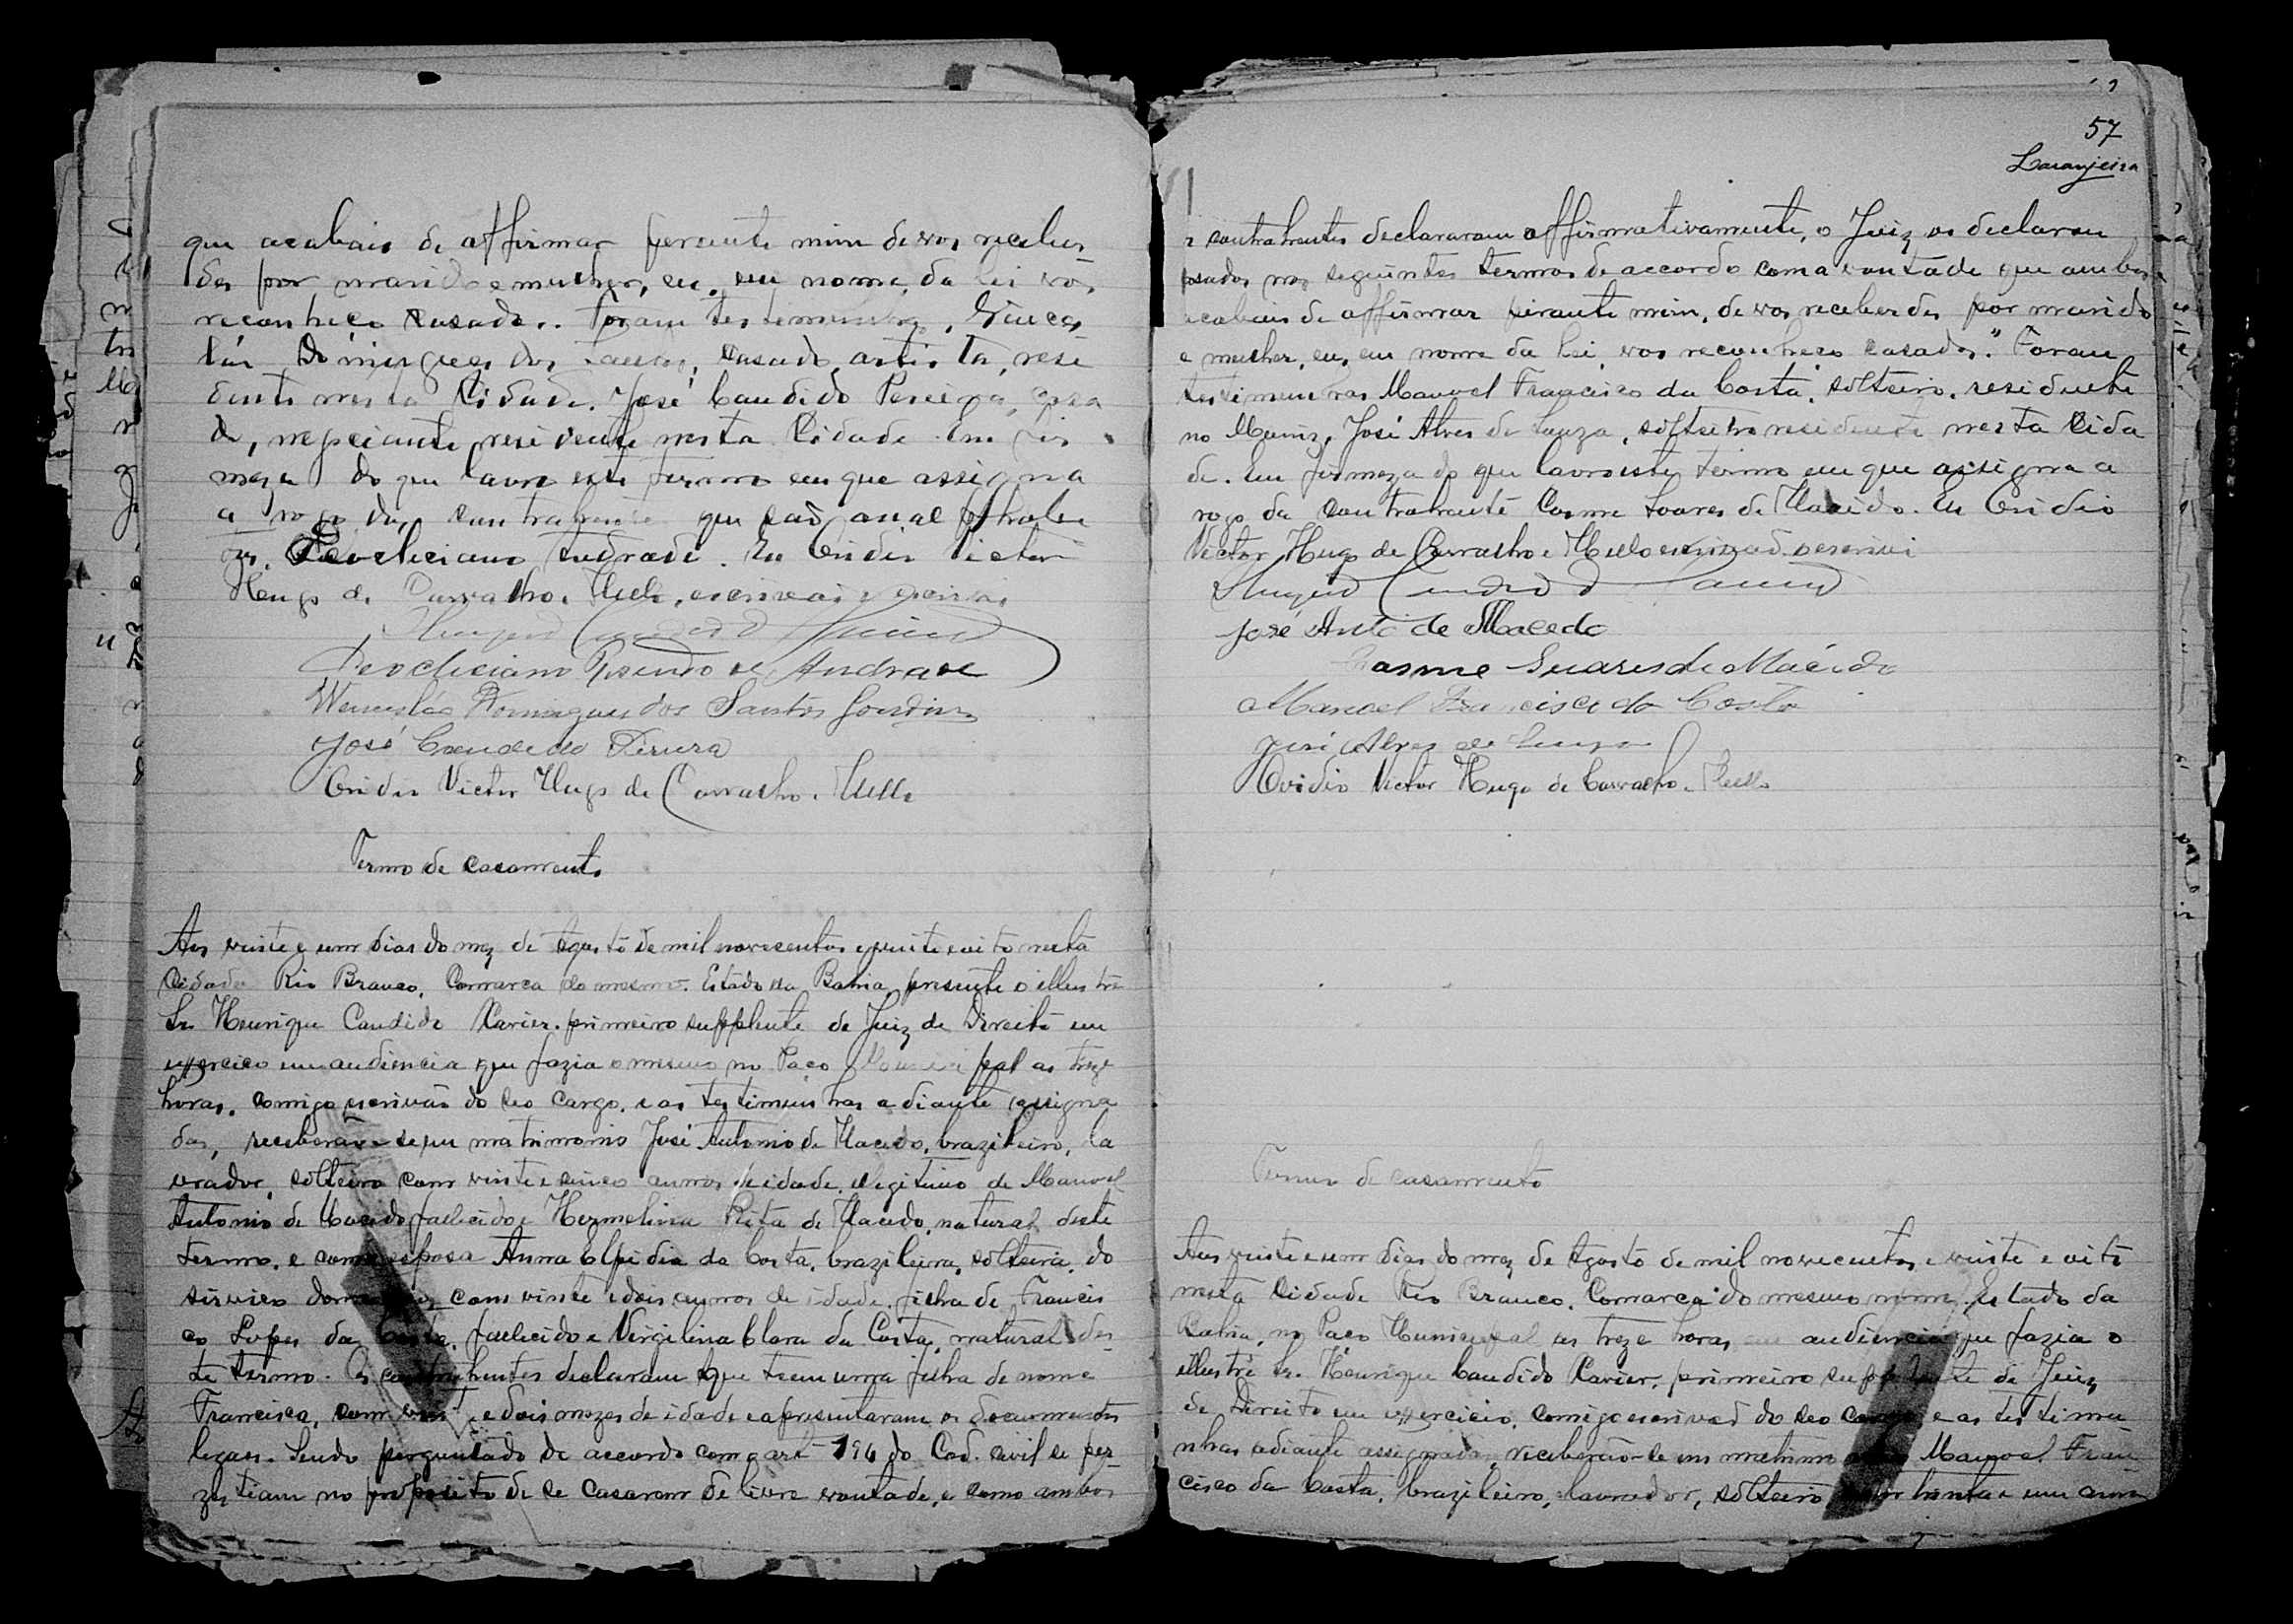 que acabais de affirmar perante mim de vos receber
des por marido e mulher, eu, em nome da lei vos
reconheço casados. Foram testemunhas,
Domingues dos Santos, casado, artista, resi
dente nesta Cidade. José Candido Pereira, casa
do, negociante, residente nesta Cidade. Em fir
meza do que lavro este termo em que assigna
a rogo dos contrahentes que são
Deocliciano Andrade. Eu Ovidio Victor
Hugo de Carvalho e Mello, escrivão o escrivi
Deocliciano de Andrade
Domingues dos Santos
José Candido Pereira
Ovidio Victor Hugo de Carvalho e Mello
Termo de casamento
Aos vinte e um dias do mez de Agosto de mil novecentos e vinte e oito nesta
Cidade Rio Branco, Comarca do mesmo. Estado da Bahia, presente o illustre
Sr. Henrique Candido Xavier, primeiro supplente de Juiz de Direito em
exercico em audiencia que fazia o mesmo no Paço Municipal as treze
horas, comigo escrivão do seo cargo, e as testimunhas adiante assigna
das, receberão-se em matrimonio José Antonio de Macedo, brazileiro, la
vrador, solteiro com vinte e cinco annos de idade, legitimo de Manoel
Antonio de Macedo fallecido e Hermelina Rita de Macedo, natural deste
termo, e como esposa Anna Elpidia da Costa, brazileira, solteira, do
serviço com vinte e dois annos de idade, filha de Francis
co Lopes da Costa, fallecido e Virgilina Clara da Costa, natural des
te termo. Os contrahentes declaram que tem uma filha de nome
Francisca, com e dois mezes de idade e apresentaram os documentos
legaes. Sendo perguntado de accordo com o art 194 do Cod. civil se per
zistiam no proposito de se casarem de livre vontade, e como ambos
57
Laranjeira
contrahentes declararam affirmativamente, o Juiz os declarou
casados nos seguintes termos de accordo com a vontade que ambos
acabais de affirmar perante mim, de vos receberdes por marido
e mulher, eu, em nome da lei, vos reconheço casados." Foram
testimunhas Manoel Francisco da Costa, solteiro, residente
no Muniz, José Alves de Souza, solteiro residente nesta Cida
de. Em firmeza do que lavro este termo em que assigna a
rogo da contrahente Cosme Soares de Macedo. Eu Ovidio
Victor Hugo de Carvalho e Mello escrivão o escrivi
José Antº de Macedo
Cosme Suares de Macedo
Manoel Francisco da Costa
José Alves de Souza
Ovidio Victor Hugo de Carvalho e Mello
Termo de casamento
Aos vinte e um dias do mez de Agosto de mil novecentos e vinte e oito
nesta Cidade Rio Branco, Comarca do mesmo nome, Estado da
Bahia, no Paço Municipal as treze horas em audiencia que fazia o
illustre Sr. Henrique Candido Xavier, primeiro supplente de Juiz
de Direito em exercicio, comigo escrivão do seo cargo e as testimu
nhas adiante assignadas, receberão-se em matrimonio Manoel Fran
cisco da Costa, brazileiro, lavrador, solteiro trinta e um annos